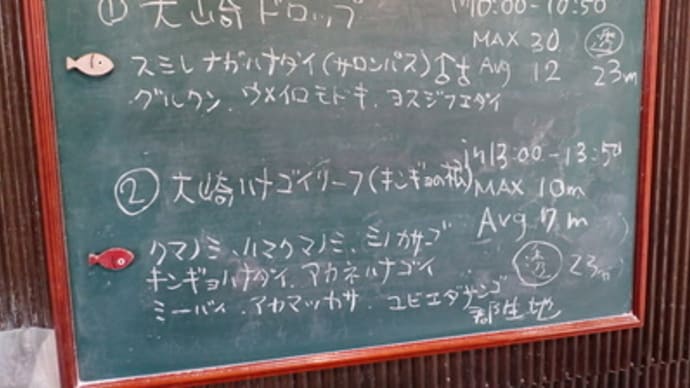 ① 大崎ドロップ
in 10:00-10:50
MAX 30
スミレナガハナダイ(サロンパス)♂♀
Avg 12
透 23m
グルクン、ウメイロモドキ、ヨスジフエダイ
② 大崎ハナゴイリーフ(キンギョの根)
in 13:00-13:50
MAX 10m
Avg 7m
クマノミ、ハマクマノミ、ミノカサゴ
透 23m
キンギョハナダイ、アカネハナゴイ
ミーバイ、アカマツカサ、ユビエダサンゴ
群生地